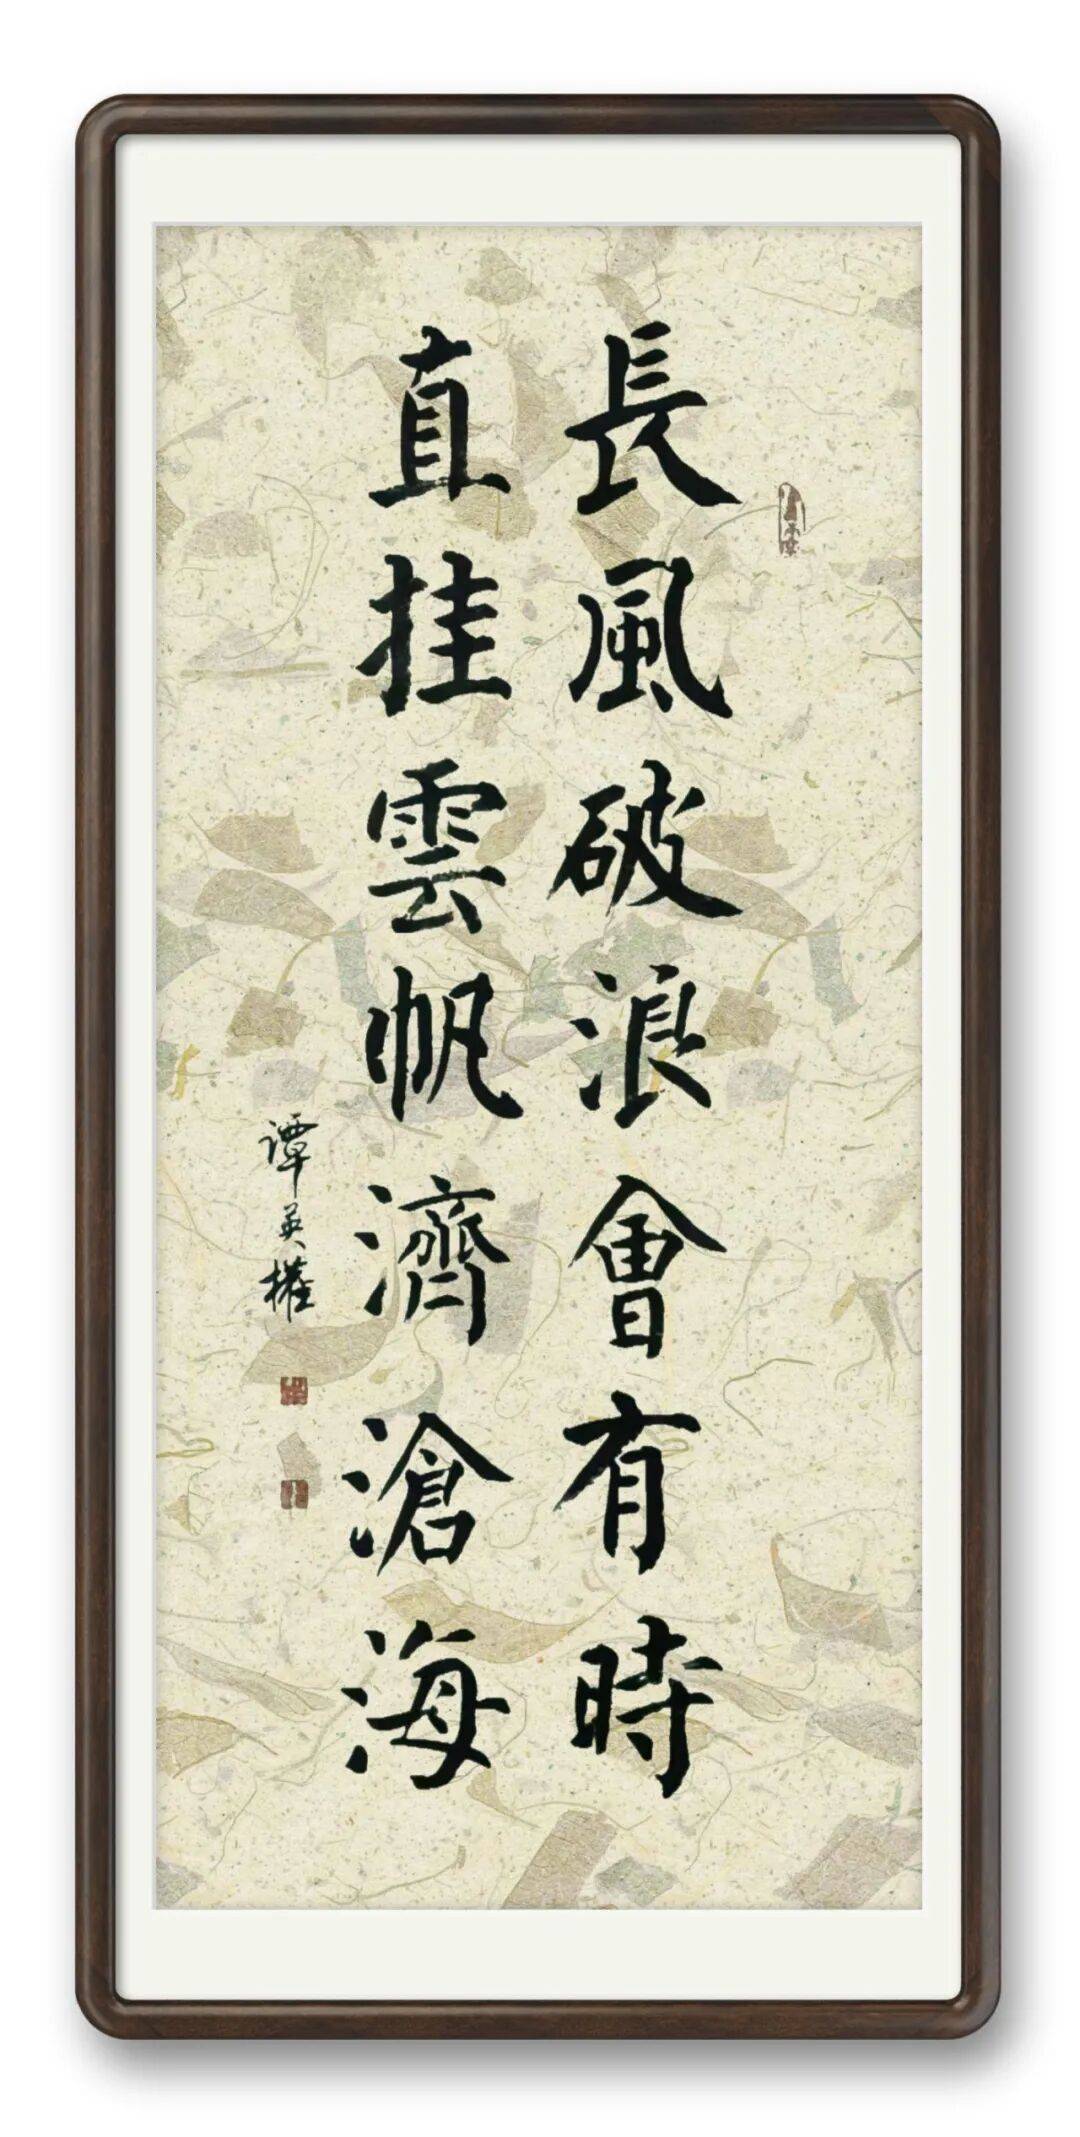 長風破浪會有時
直挂雲帆濟滄海
谭英權